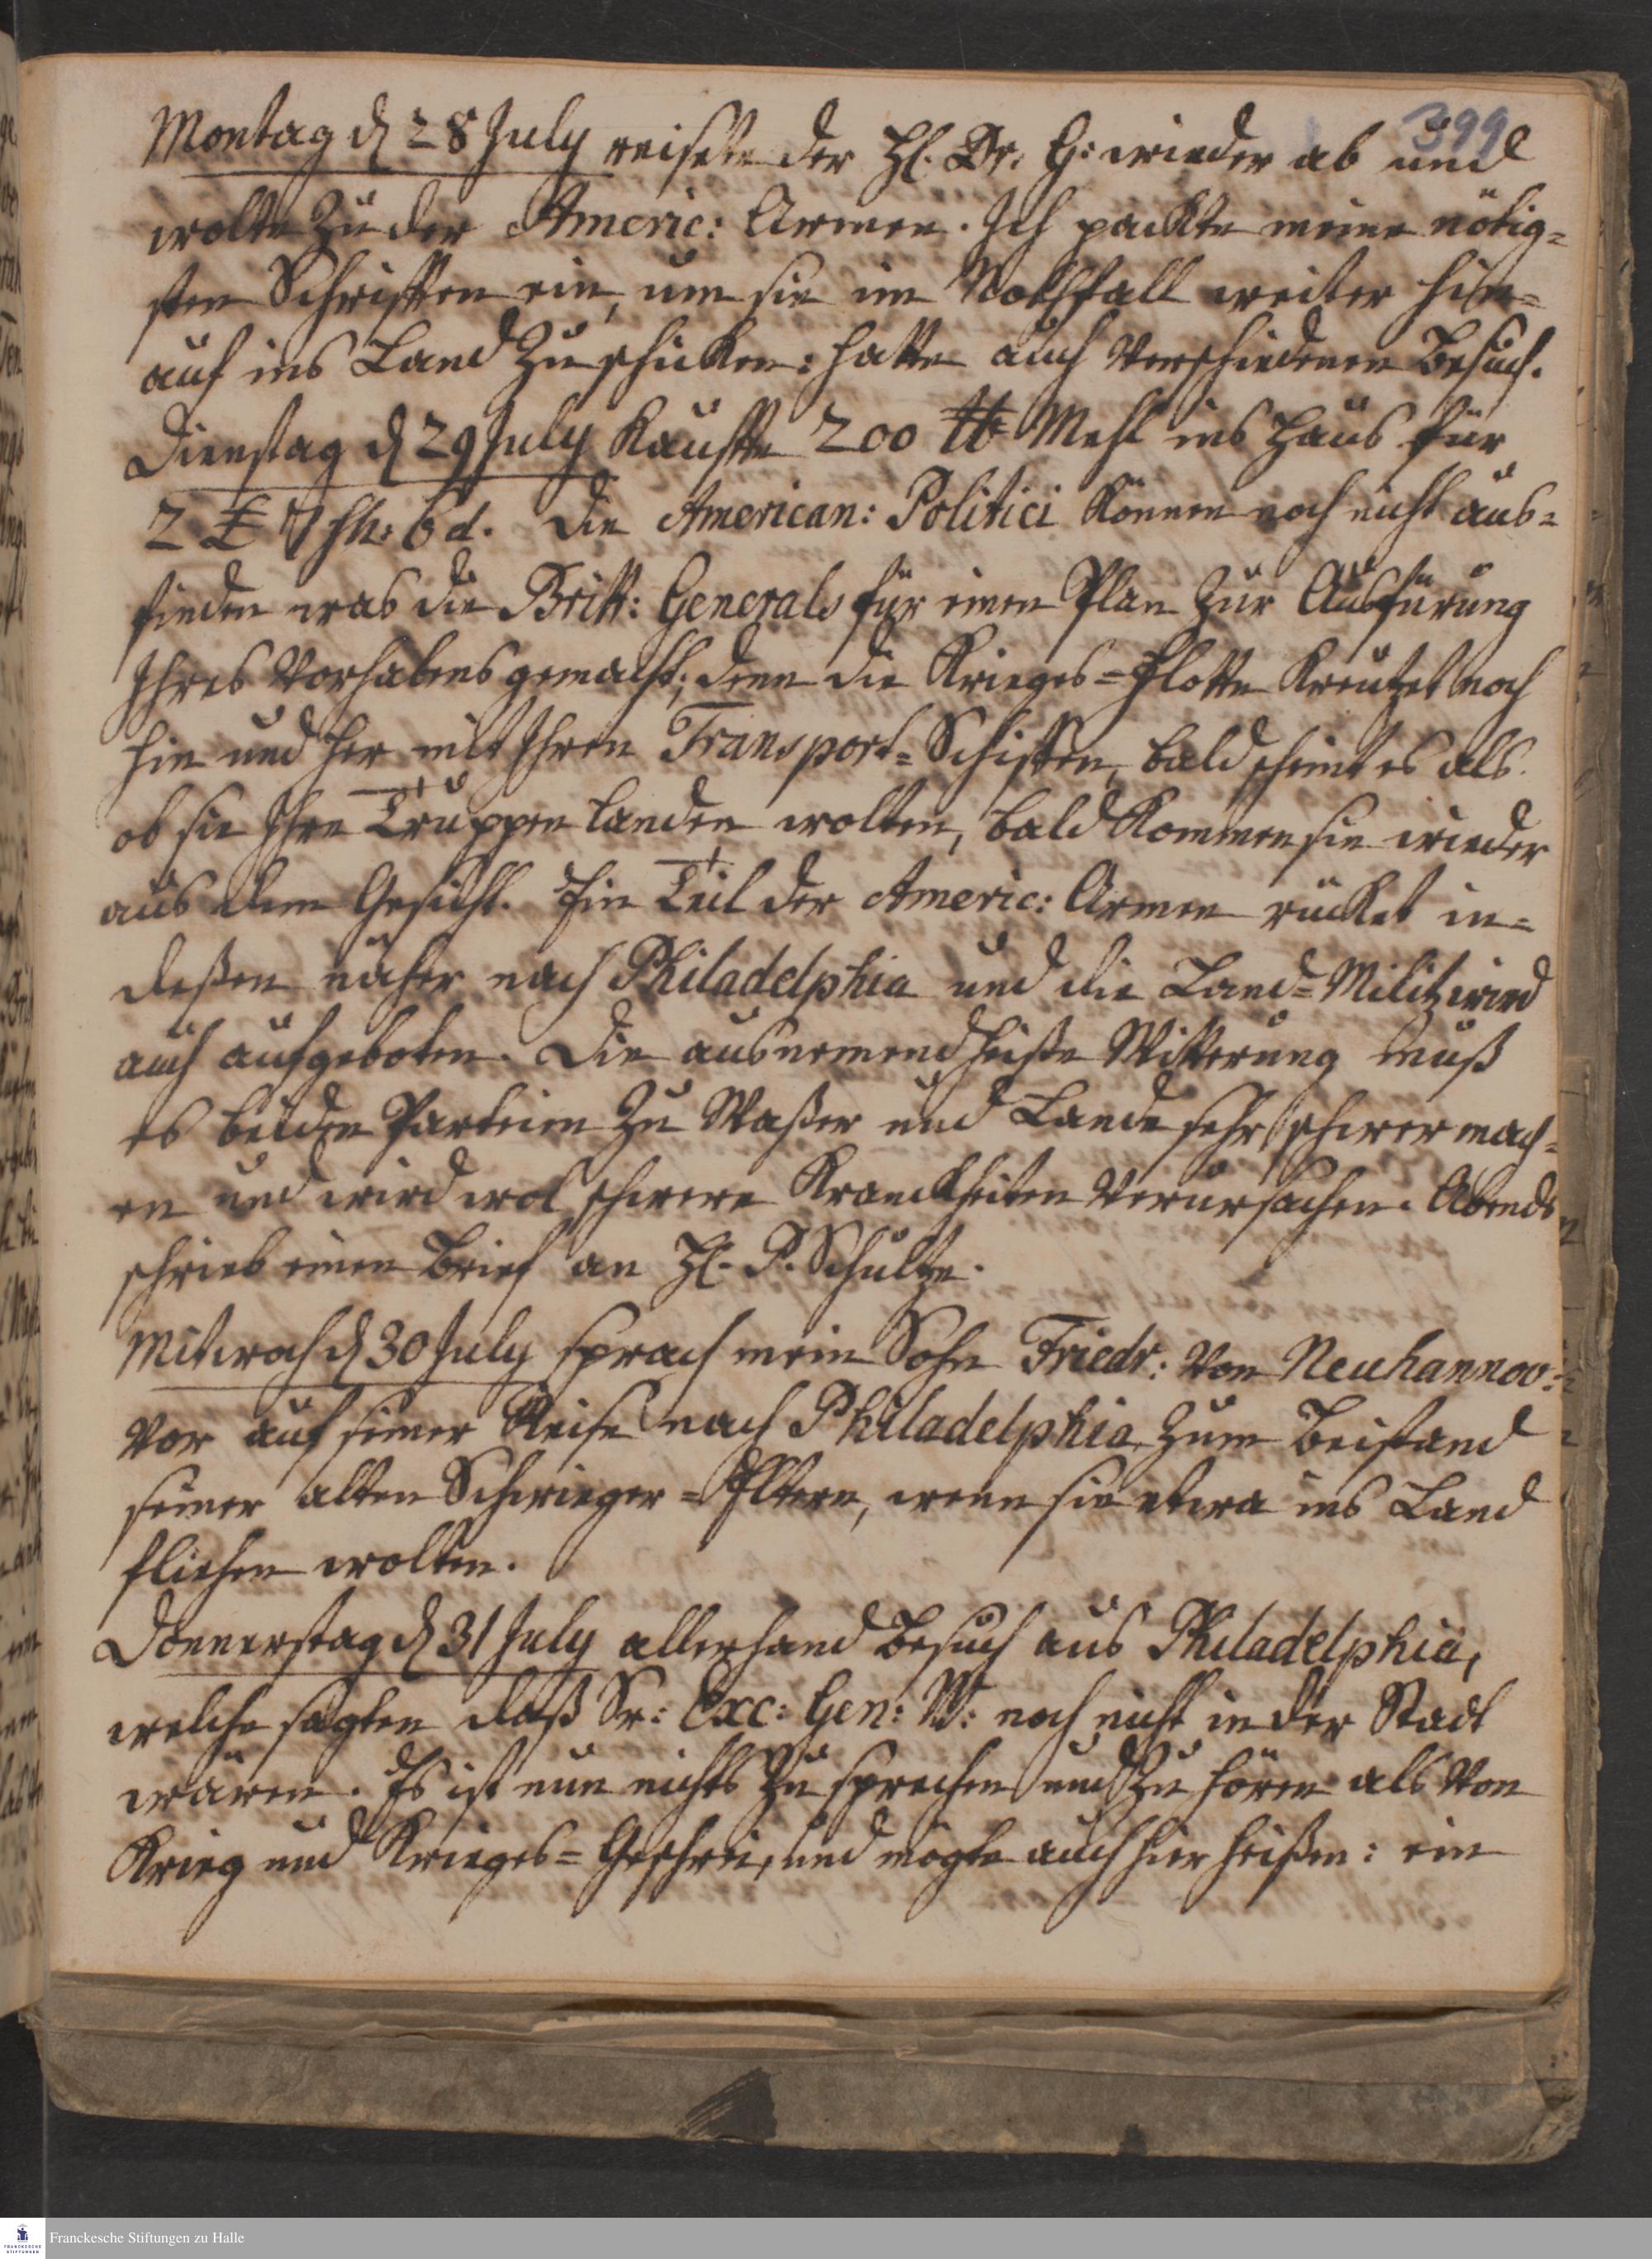 399
Montag d 28 July reisete der H. Dr. G: wieder ab und
wolte zu der Americ: Armee. Ich packte meine nötig=
sten Schrifften ein, um sie im Nothfall weiter hin=
auf ins Land zu schicken: hatte auch verschiedenen Besuch.
Dienstag d 29 July kauffte 200 ℔ Mehl ins Haus für
2 £ 7 sh: 6 d. Die American: Politici können noch nicht aus=
finden was die Britt: Generals für einen Plan zur Ausfürung
Ihres Vorhabens gemacht; denn die Krieges=Flotte kreutzet noch
hin und her mit Ihren Transport=Schiffen, bald scheint es als
ob sie Ihre Truppen landen wolten, bald kommen sie wieder
aus dem Gesicht. Ein Teil der Americ: Armee rücket in=
deßen näher nach Philadelphia und die Land=Militz wird
auch aufgeboten. Die ausnemend heiße Witterung muß
es beiden Parteien zu Waßer und Lande sehr schwer mach=
en und wird wol schwere Kranckheiten verursachen. Abends
schrieb einen Brief an H. P. Schultze.
Mitwoch d 30 July sprach mein Sohn Friedr: von Neuhannov:
vor auf seiner Reise nach Philadelphia, zum Beistand
seiner alten Schwieger=Eltern, wenn sie etwa ins Land
fliehen wolten.
Donnerstag d 31 July allerhand Besuch aus Philadelphia,
welche sagten daß Sr: Exc: Gen: W: noch nicht in der Stadt
wären. Es ist nun nichts zu sprechen und zu hören als von
Krieg und Krieges=Geschrei, und mögte auch hier heißen: ein
Franckesche Stiftungen zu Halle
FRANCKESCHE
STIFTUNGEN